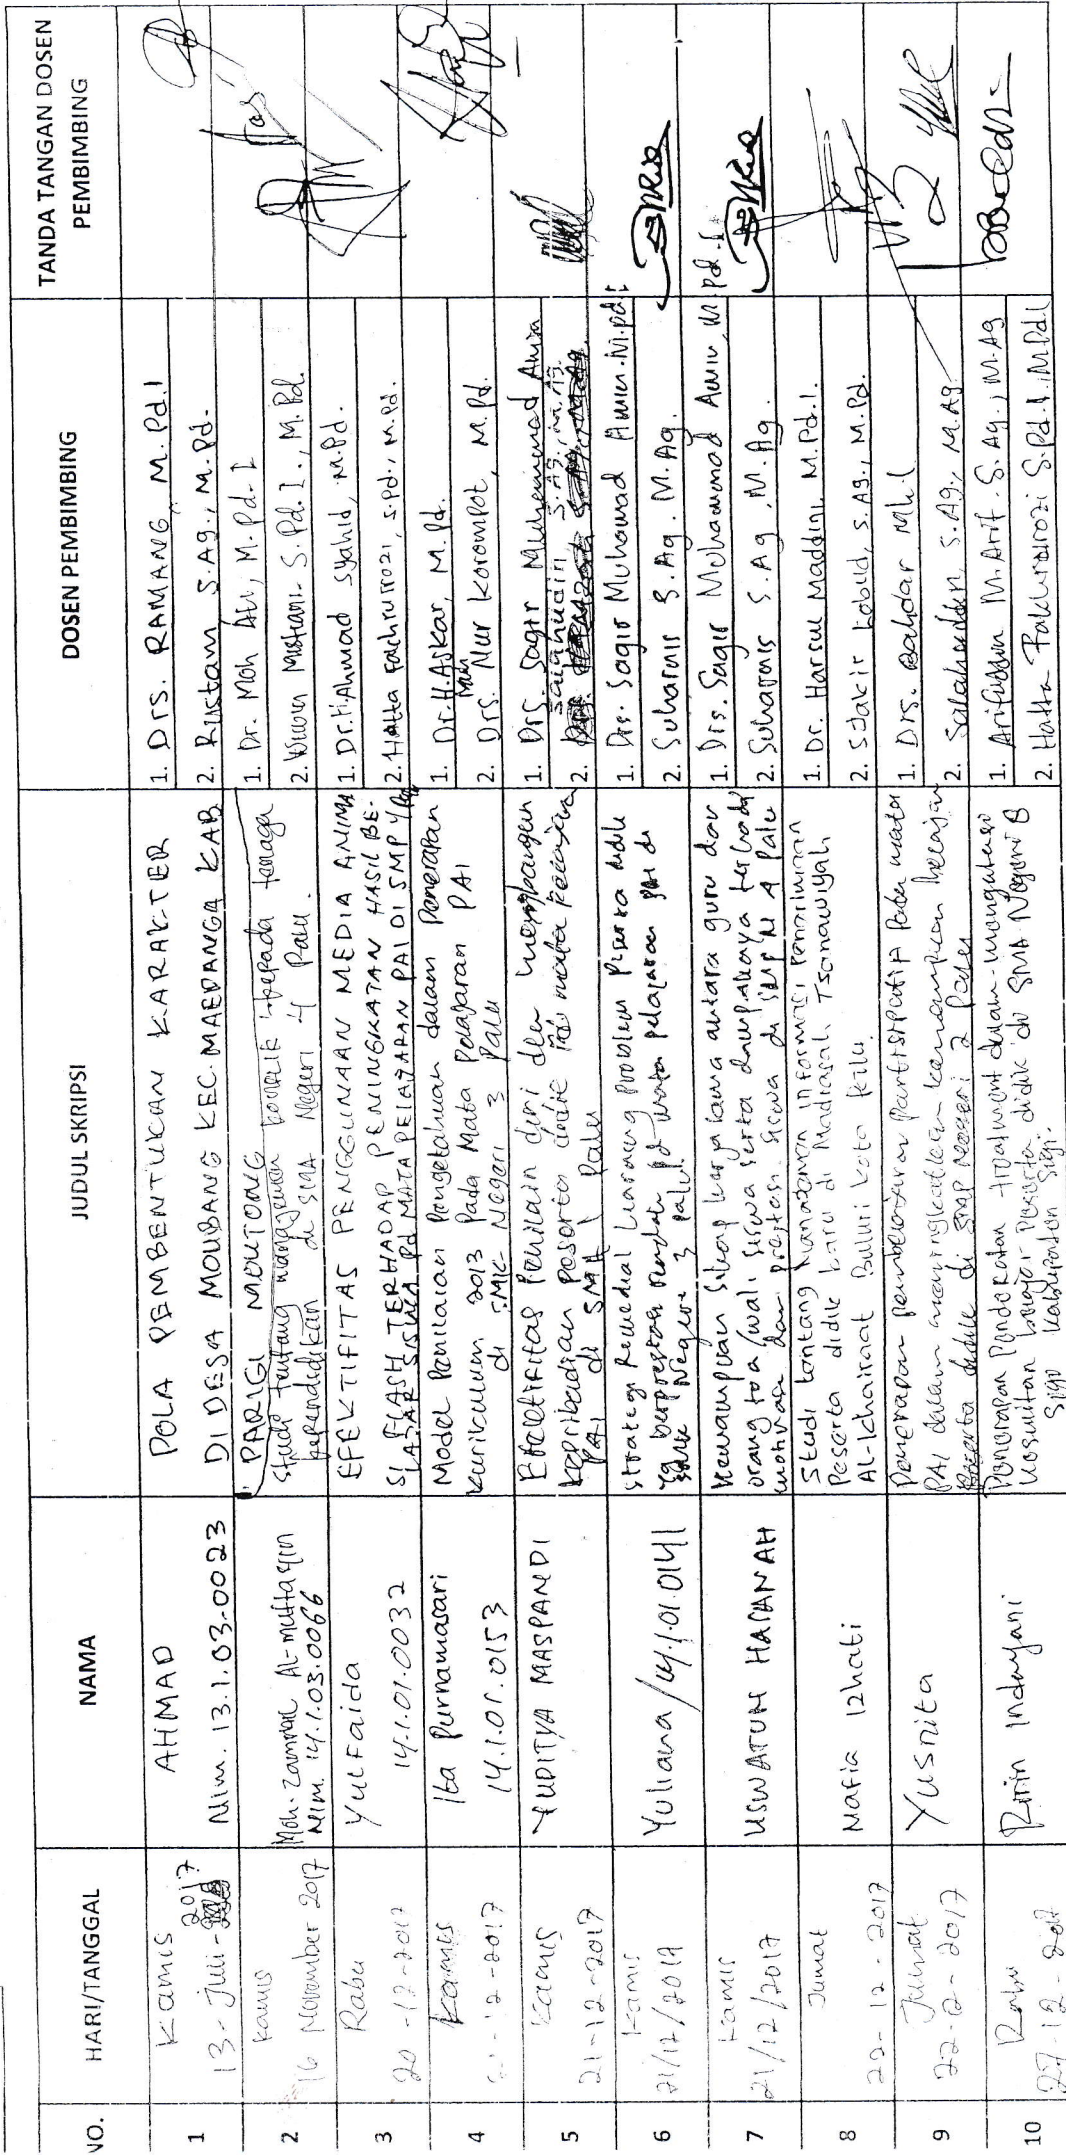 NO.
HARI/TANGGAL
NAMA
JUDUL SKRIPSI
DOSEN PEMBIMBING
TANDA TANGAN DOSEN
PEMBIMBING
1
Kamis
2017
13 - Juli -
AHMAD
Nim. 13.1.03.0023
POLA PEMBENTUKAN KARAKTER
DI DESA MOUBANG KEC. MAEPANGA KAB
PARIGI MOUTONG
1. Drs. RAMANG, M.Pd.I
2. Rustam S.Ag., M.Pd.
2
Kamis
16 November 2017
Moh. Zammal Al-muttaqin
Nim. 14.1.03.0066
Studi tentang manajemen konflik kepada tenaga
kependidikan di SMA Negeri 4 Palu.
1. Dr. Moh Ali, M.Pd.I
2. Wiwin Mistiani. S.Pd.I., M.Pd.
3
Rabu
20 - 12 - 2017
Yulfaida
14.1.01.0032
EFEKTIFITAS PENGGUNAAN MEDIA ANIMA
SI FLASH TERHADAP PENINGKATAN HASIL BE-
LAJAR SISWA Pd MATA PELAJARAN PAI DI SMP
1. Dr. H. Ahmad Syahid, M.Pd.
2. Hatta Fakhrurrozi, S.Pd., M.Pd.
4
Kamis
12 - 2017
Ita Purnamasari
14.1.01.0153
Model Penilaian Pengetahuan dalam Penerapan
Kurikulum 2013 Pada Mata Pelajaran PAI
di SMK Negeri 3 Palu
1. Dr. H. Askar, M.Pd.
2. Drs. Moh Nur Korompot, M.Pd.
5
Kamis
21 - 12 - 2017
YUDITYA MASPANDI
Efektifitas Penilaian diri dlm
kepribadian Peserta didik
PAI di SMA 1 Palu
1. Drs. Sagir Muhammad Amin
Saifhudin S.Ag., M.Ag.
2.
6
Kamis
21/12/2017
Yuliana / 14.1.01.0141
Strategi Remedial Learning problem peserta didik
yg berprestasi rendah pd mata pelajaran PAI di
Negeri 3 Palu
1. Drs. Sagir Muhamad Amin. M.pd.I
2. Suharnis S.Ag. M.Ag.
7
Kamis
21/12/2017
USWATUN HASANAH
Kemampuan Sikap kerja sama antara guru dan
orang tua/wali siswa serta dampaknya terhadap
motivasi dan prestasi siswa di SMP N 4 Palu
1. Drs. Sagir Muhammad Amin, M.Pd.I
2. Suharnis S.Ag, M.Ag.
8
Jumat
22 - 12 - 2017
Nafia Izhati
Studi tentang Manajemen informasi penerimaan
Peserta didik baru di Madrasah Tsanawiyah
Al-khairaat Buluri kota Palu.
1. Dr. Harsul Maddini, M.Pd.I.
2. Sjakir Lobud, S.Ag., M.Pd.
9
Jumat
22 - 12 - 2017
Yusnita
Penerapan pembelajaran partisipatif pada mata
PAI dalam meningkatkan kemampuan belajar
Peserta didik di SMP Negeri 2 Palu
1. Drs. Bahdar M.H.I
2. Salahuddin, S.Ag., M.Ag.
10
Rabu
27 - 12 - 2017
Ririn Indayani
Penerapan Pendekatan treatment dalam mengatasi
kesulitan belajar Peserta didik di SMA Negeri 8
Sigi Kabupaten Sigi.
1. Arifuddin M. Arif. S.Ag., M.Ag
2. Hatta Fakhrurrozi S.Pd.I., M.Pd.I